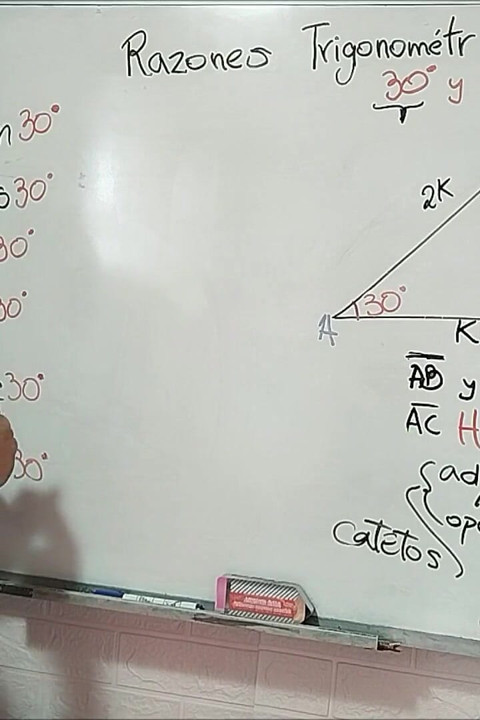 Razones Trigonométr
30° y
n 30°
30°
30°
30°
30°
30°
2K
A 30°
K
AB y
AC H
ad
catetos